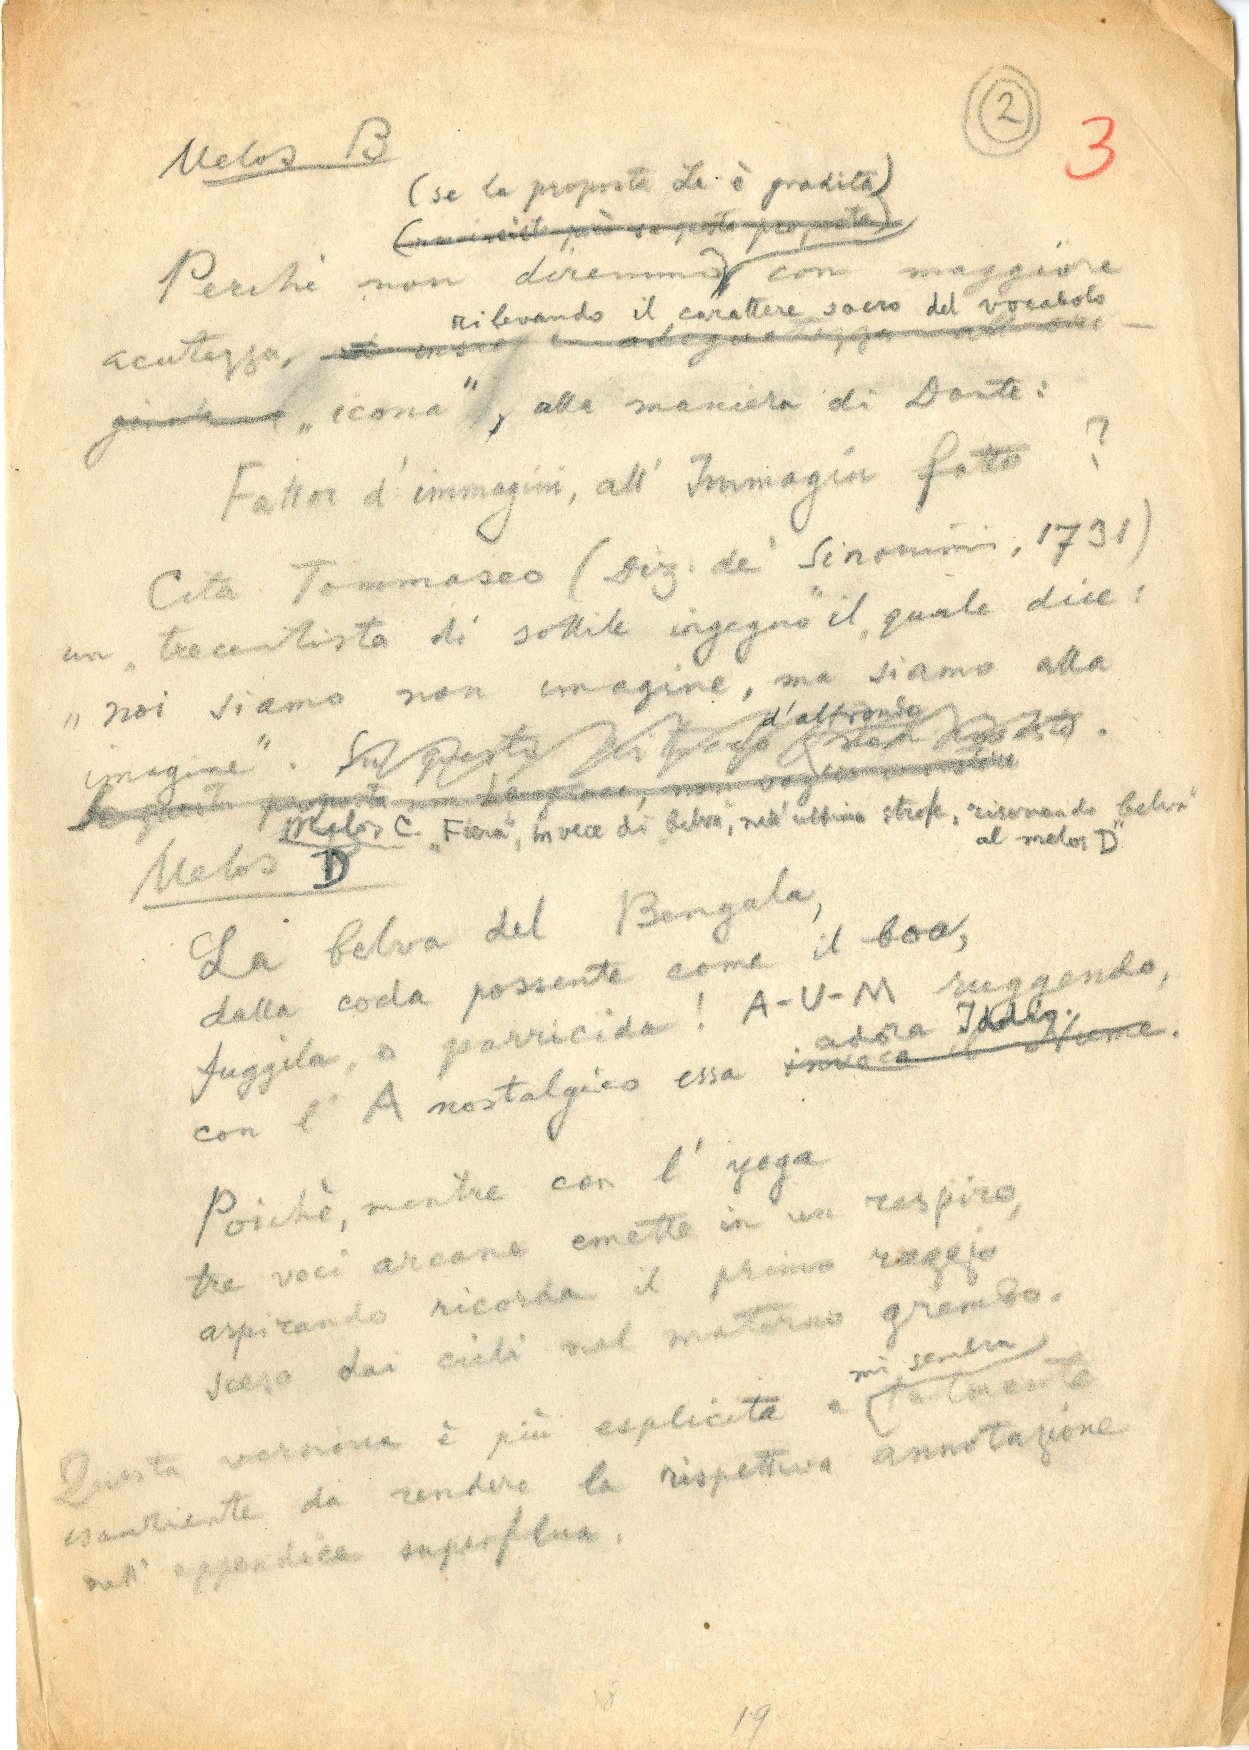 2
3
Melos B
(se la proposta Le è gradita)
(
Perchè non diremmo, con maggiore
rilevando il carattere sacro del vocabolo
acutezza,
„icona", alla maniera di Dante:
Fattor d'immagini, all' Immagin fatto ?
Cita Tommaseo (Diz. de' Sinonimi, 1731)
un „trecentista di sottile ingegno" il quale dice:
„noi siamo non imagine, ma siamo alla
d'altronde
imagine".
Melos C. „Fiera", invece di „belva", nell'ultima strofe, risonando „belva"
al melos D
Melos D
La belva del Bengala,
dalla coda possente come il boa,
fuggila, o parricida! A-U-M ruggendo,
adora
con l' A nostalgico essa invoca il Nume.
Poichè, mentre con l' yoga
tre voci arcane emette in un respiro,
aspirando ricorda il primo raggio
sceso dai cieli nel materno grembo.
mi sembra
Questa versione è più esplicita e talmente
esauriente da rendere la rispettiva annotazione
nell' appendice superflua.
19